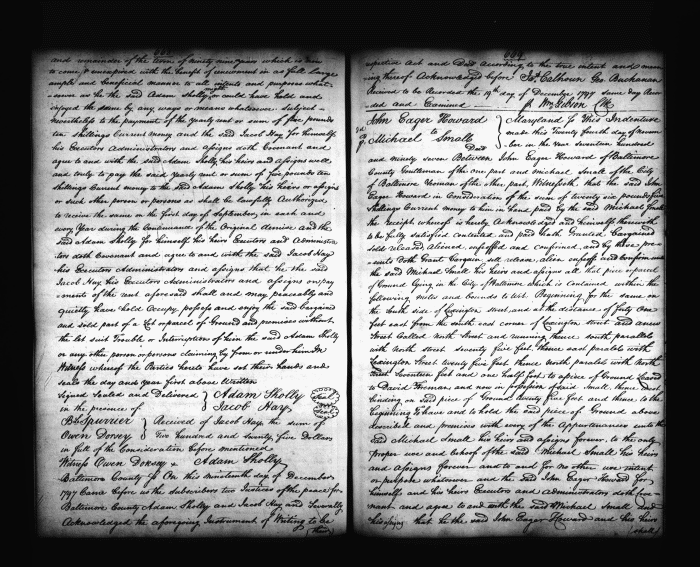 663
and remainder of the term of ninety nine years which is now
to come & unexpired with the benefit of renewment in as full large
ample and beneficial manner to all intents and purposes what-
-soever as he the said Adam Sholly or could have held and
enjoyed the same by any ways or means whatsoever Subject
nevertheless to the payment of the yearly rent or sum of five pounds
ten Shillings Current money and the said Jacob Hay for himself
his Executors Administrators and assigns doth Covenant and
agree to and with the said Adam Sholly his heirs and assigns well
and truly to pay the said Yearly rent or sum of five pounds ten
shillings Current money to the said Adam Sholly his heirs or assigns
or such other person or persons as shall be lawfully Authorized
to receive the same on the first day of September in each and
every Year during the Continuance of the Original demise and the
said Adam Sholly for himself his heirs Executors and Administra-
tors doth Covenant and agree to and with the said Jacob Hay
his Executors Administrators and assigns that he the said
Jacob Hay his Executors Administrators and assigns on pay
ment of the rent aforesaid shall and may peaceably and
quietly have hold Occupy possess and enjoy the said bargained
and sold part of a Lot or parcel of Ground and premises without
the let suit Trouble or Interruption of him the said Adam Sholly
or any other person or persons claiming by from or under him In
Witness whereof the Parties hereto have set their hands and
seals the day and year first above Written
Signed Sealed and Delivered } Adam Sholly Seal
in the presence of } Jacob Hay Seal
B Spurrier } Received of Jacob Hay the sum of
Owen Dorsey } Five hundred and twenty five Dollars
in full of the Consideration before mentioned
Witness Owen Dorsey Adam Sholly
Baltimore County ss On this nineteenth day of December
1797 Came before us the Subscribers two Justices of the peace for
Baltimore County Adam Sholly and Jacob Hay and Severally
Acknowledged the aforegoing Instrument of Writing to be
their
664
respective Act and Deed According to the true intent and mean
ing hereof Acknowledged before Js. Calhoun Geo. Buchanan
Received to be Recorded the 19th day of December 1797 Same day Recor
ded and Examined Wm Gibson Clk
John Eager Howard } Maryland ss This Indenture
to } made this Twenty fourth day of novem
Michael Small } ber in the Year Seventeen hundred
Deed
and ninety seven Between John Eager Howard of Baltimore
County Gentleman of the one part and Michael Small of the City
of Baltimore Yeoman of the other part, Witnesseth that the said John
Eager Howard in Consideration of the sum of twenty six pounds five
Shillings Current money to him in hand paid by the said Michael Small
the receipt whereof is hereby Acknowledged and himself therewith
to be fully satisfied contented and paid Hath Granted Bargained
sold released, aliened, enfeoffed and confirmed, and by these pre-
sents doth Grant Bargain sell release, alien enfeoff and confirm unto
the said Michael Small his heirs and assigns all that piece or parcel
of Ground lying in the City of Baltimore which is contained within the
following metes and bounds to wit. Beginning for the same on
the South side of Lexington street, and at the distance of forty One
feet east from the south east corner of Lexington street and a new
Street Called North Street and running thence south parallel
with North street seventy five feet, thence east parallel with
Lexington Street twenty five feet thence north parallel with North
Street Seventeen feet and one half foot to a piece of Ground Leased
to David Freeman and now in possession of said Small, thence West
binding on said piece of Ground twenty five feet and thence to the
beginning To have and to hold the said piece of Ground above
described and premises with every of the Appurtenances unto the
said Michael Small his heirs and assigns forever, to the only
proper use and behoof of the said Michael Small his heirs
and assigns forever and to and for no other use intent
or purpose whatsoever and the said John Eager Howard for
himself and his heirs Executors and Administrators doth Cove
nant and agree to and with the said Michael Small and
his assigns that he the said John Eager Howard and his heirs
shall